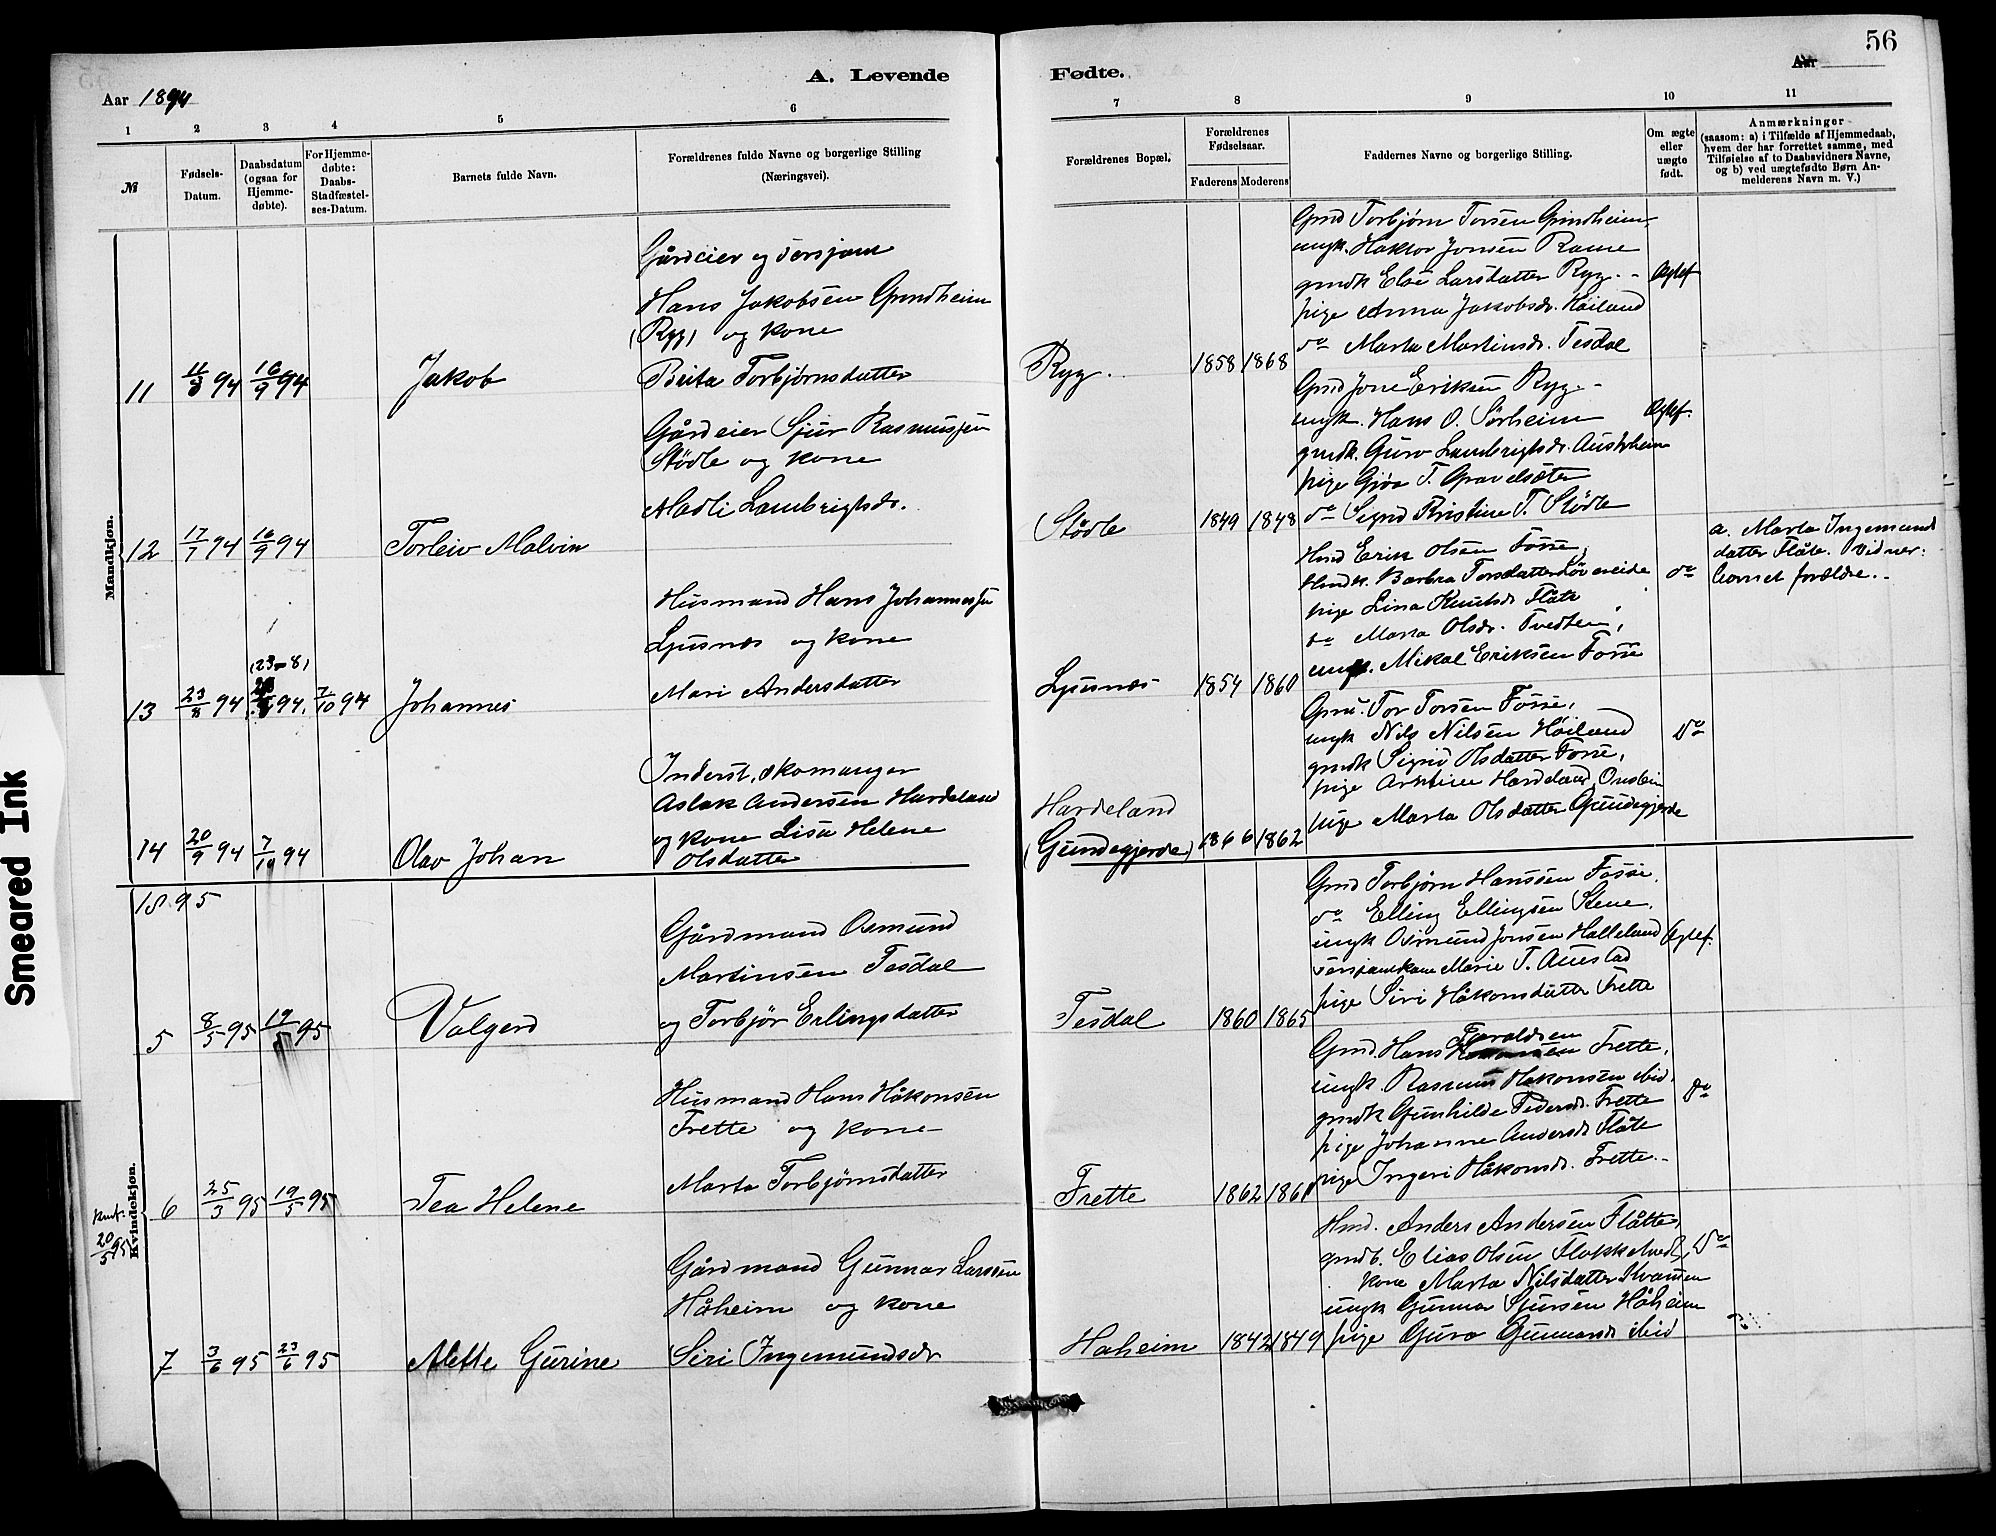 56
A. Levende Fødte.
Aar 1894
Aar
1 2 3 4 5 6 7 8 9 10 11
№
Fødsels-Datum.
Daabsdatum (ogsaa for Hjemme-døbte).
For Hjemme-døbte: Daabs-Stadfæstel-ses-Datum.
Barnets fulde Navn.
Forældrenes fulde Navne og borgerlige Stilling
(Næringsvei).
Forældrenes Bopæl.
Forældrenes Fødselsaar.
Faderens Moderens
Faddernes Navne og borgerlige Stilling.
Om ægte eller uægte født.
Anmærkninger
(saasom: a) i Tilfælde af Hjemmedaab,
hvem der har forrettet samme, med
Tilføielse af to Daabsvidners Navne,
og b) ved uægtefødte Børn An-
melderens Navn m. V.)
Mandkjøn.
11 94 16/9 94 Jakob
Gårdeier og
Hans Jakobsen Grindheim
(Ryg) og kone
Brita Torbjørnsdatter
Ryg. 1858 1868
Gmd Torbjørn Torsen Grindheim,
ungk. Håktor Jonsen Rame
gmdk Elsi Larsdatter Ryg.
pige Anna Jakobsdr. Høiland
do Marta Martinsdr. Tesdal
Ægtef
12 17/7 94 16/9 94 Torleiv Malvin
Gårdeier Sjur Rasmussen
Stödle og kone
Madli Lambrigtsdr.
Stödle 1849 1848
Gmd Jone Eriksen Ryg
ungk. Hans O. Sörheim
gmdk. Guro Lambrigtsdr. Austrheim
pige Gjøa T. Gravelsæter
do Sigrid Kristine T. Stödle
Ægtef.
13 23/8 94 (23-8) 94. 7/10 94 Johannes
Husmand Hans Johannessen
Ljusnæs og kone
Mari Andersdatter
Ljusnæs 1854 1860
Hmd Erik Olsen Fosse,
Hmdk. Barbra Torsdatter Løvereide
pige Lina Knutsdr Flåte
do Marta Olsdr. Tvedten,
ungk. Mikal Eriksen Fosse
do
a. Marta Ingemund
datter Flåte. Vidner:
barnet forældre.
14 20/9 94 7/10 94 Olav Johan
Inderst, skomanger
Aslak Andersen Hardeland
og kone Lisa Helene
Olsdatter
Hardeland
(Gundegjerde) 1866 1862
Gmd. Tor Torsen Fosse,
ungk Nils Nilsen Høiland
gmdk Sigrid Olsdatter Fosse,
pige Hardeland,
pige Marta Olsdatter Gundegjerde
Do
1895
Kvindekjøn.
5 8/5 95 19/5 95 Valgerd
Gårdmand Osmund
Martinsen Tesdal
og Torbjør Erlingsdatter
Tesdal 1860 1865
Gmd Torbjørn Hanssen Fosse.
do Elling Ellingsen Stene.
ungk Osmund Jonsen Halleland
Marie T. Austad
pige Siri Håkonsdatter Frette
Ægtef.
6 25/3 95 19/5 95 Tea Helene
20/5 95
Husmand Hans Håkonsen
Frette og kone
Marta Torbjørnsdatter
Frette 1862 1861
Gmd. Hans Tjeraldsen Frette,
ungk. Rasmus Håkonsen ibid.
gmdk Gunhilde Pedersd. Frette
pige Johanne Andersd. Flåte
pige Ingeri Håkonsdr. Frette.
do
7 3/6 95 23/6 95 Alette Gurine
Gårdmand Gunnar Larssen
Håheim og kone
Siri Ingemundsdr
Haheim 1842 1849
Hmd. Anders Andersen Flåtte,
gmdk. Elias Olsen
kone Marta Nilsdatter
ungk Gunnar Sjursen Håheim
pige Guro Gunnarsd ibid
Do
Smeared Ink